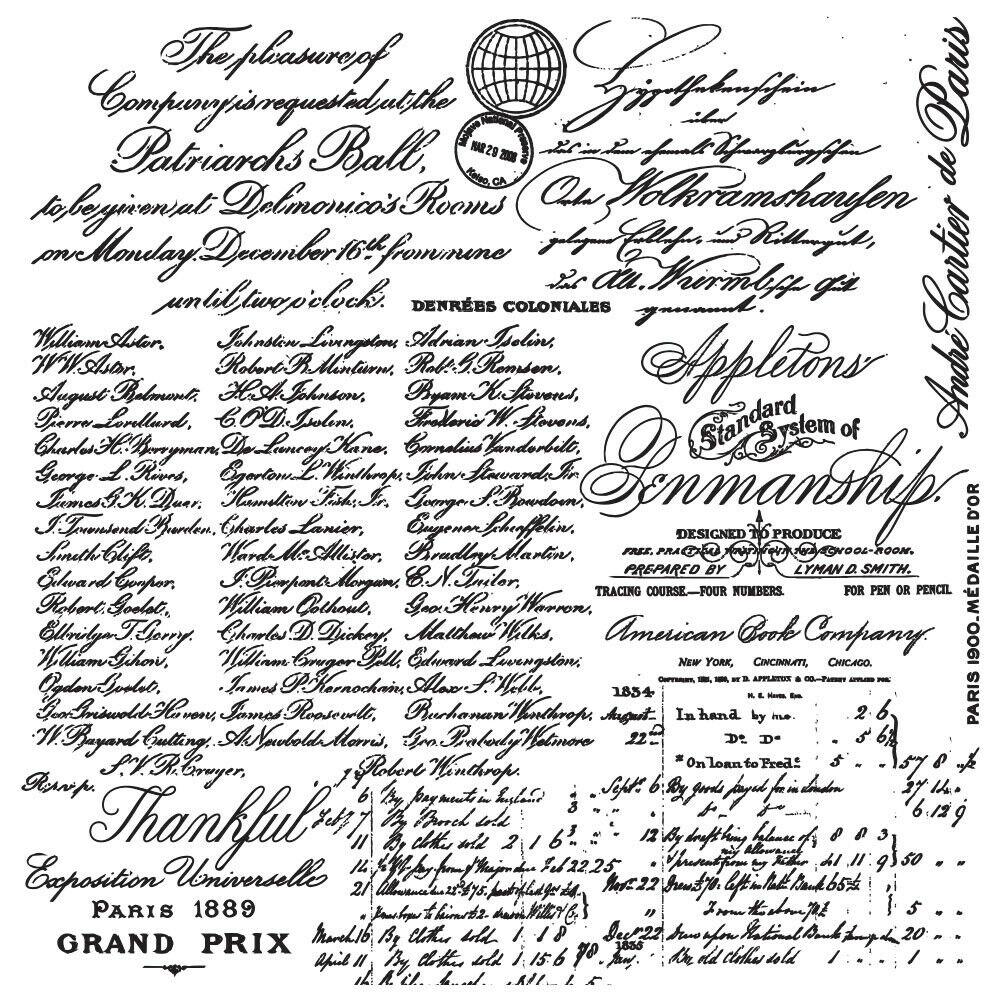 The pleasure of
Company is requested at the
Patriarchs Ball,
to be given at Delmonico's Rooms
on Monday. December 16th from nine
until two o'clock.
Mojave National Preserve
MAR 29 2008
Kelso, CA
Hypothekenschein
über
das in dem ehemals Schwarzburgschen
Orte Wolkramshausen
gelegene Erblehn- und Rittergut,
das Alt. Wurmb.sche Gut
genannt.
André Cartier de Paris
DENRÉES COLONIALES
William Astor,
W.W. Astor,
August Belmont,
Pierre Lorillard,
Charles H. Berryman,
George L. Rives,
James G.K. Duer,
J. Townsend Burden,
Smith Clift,
Edward Cooper,
Robert Goelet,
Elbridge T. Gerry,
William Gihon,
Ogden Goelet,
Geo. Griswold Haven,
W. Bayard Cutting,
S.V.R. Cruger,
R.s.v.p.
Johnston Livingston,
Robert B. Minturn,
H.A. Johnson,
C.O'D. Iselin,
De Lancey Kane,
Egerton L. Winthrop,
Hamilton Fish, Jr.
Charles Lanier,
Ward McAllister,
J. Pierpont Morgan,
William Oothout,
Charles D. Dickey,
William Cruger Pell,
James P. Kernochan,
James Roosevelt,
A. Newbold Morris,
Adrian Iselin,
Robt. G. Remsen,
Byam K. Stevens,
Frederic W. Stevens,
Cornelius Vanderbilt,
John Steward, Jr.
George S. Bowdoin,
Eugene Schieffelin,
Bradley Martin,
E.N. Tailer,
Geo. Henry Warren,
Matthew Wilks,
Edward Livingston,
Alex. S. Webb,
Buchanan Winthrop,
Geo. Peabody Wetmore
Robert Winthrop.
Appletons'
Standard
System of
Penmanship.
DESIGNED TO PRODUCE
FREE, PRACTICAL WRITING IN THE SCHOOL-ROOM.
PREPARED BY LYMAN D. SMITH.
TRACING COURSE.—FOUR NUMBERS. FOR PEN OR PENCIL
American Book Company.
NEW YORK, CINCINNATI, CHICAGO.
COPYRIGHT, BY D. APPLETON & CO.—PATENT APPLIED FOR.
PARIS 1900. MÉDAILLE D'OR
Thankful
Exposition Universelle
PARIS 1889
GRAND PRIX
6 By payments in England
Feby 7 By Brooch sold
11 By Clothes sold 2 1 6
14
21
March 16 By Clothes sold 1 1 8
April 11 By Clothes sold 1 15 6
1834
August In hand by me 2 6
22nd Do Do 5 6½
* On loan to Fred. 5 57 8 ½
Septr. 6 By goods payed for in London 27 14
6 12 9
12 By draft being balance of my allowance 8 8 3
present from my Father 41 11 9 50
Novr. 22
From the above 5
Decr 22 20
1835
Jan. By old Clothes sold 1 1